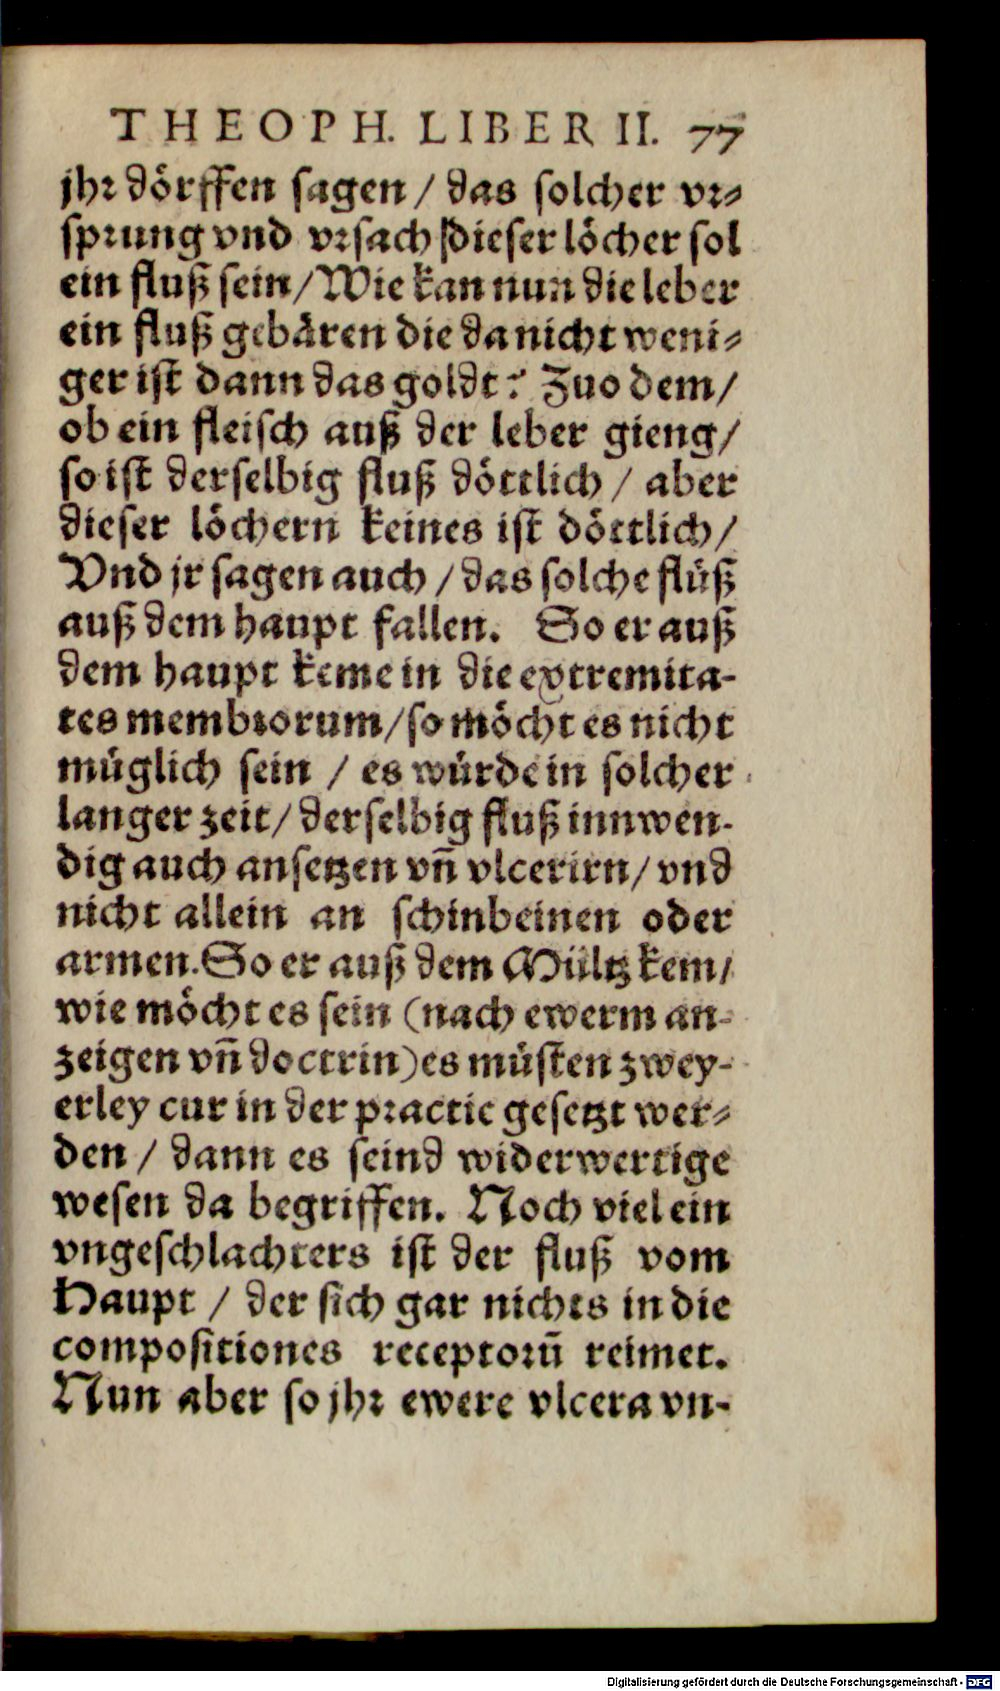 THEOPH. LIBER II. 77
jhr dörffen sagen / das solcher vr⸗
sprung vnd vrsach dieser löcher sol
ein fluß sein / Wie kan nun die leber
ein fluß gebären die da nicht weni⸗
ger ist dann das goldt? Zuo dem /
ob ein fleisch auß der leber gieng /
so ist derselbig fluß döttlich / aber
dieser löchern keines ist döttlich /
Vnd jr sagen auch / das solche flüß
auß dem haupt fallen. So er auß
dem haupt keme in die extremita-
tes membrorum / so möcht es nicht
müglich sein / es würde in solcher
langer zeit / derselbig fluß innwen-
dig auch ansetzen vñ vlcerirn / vnd
nicht allein an schinbeinen oder
armen. So er auß dem Mültz kem /
wie möcht es sein (nach ewerm an-
zeigen vñ doctrin) es müsten zwey-
erley cur in der practic gesetzt wer⸗
den / dann es seind widerwertige
wesen da begriffen. Noch viel ein
vngeschlachters ist der fluß vom
Haupt / der sich gar nichts in die
compositiones receptorū reimet.
Nun aber so jhr ewere vlcera vn-
Digitalisierung gefördert durch die Deutsche Forschungsgemeinschaft - DFG